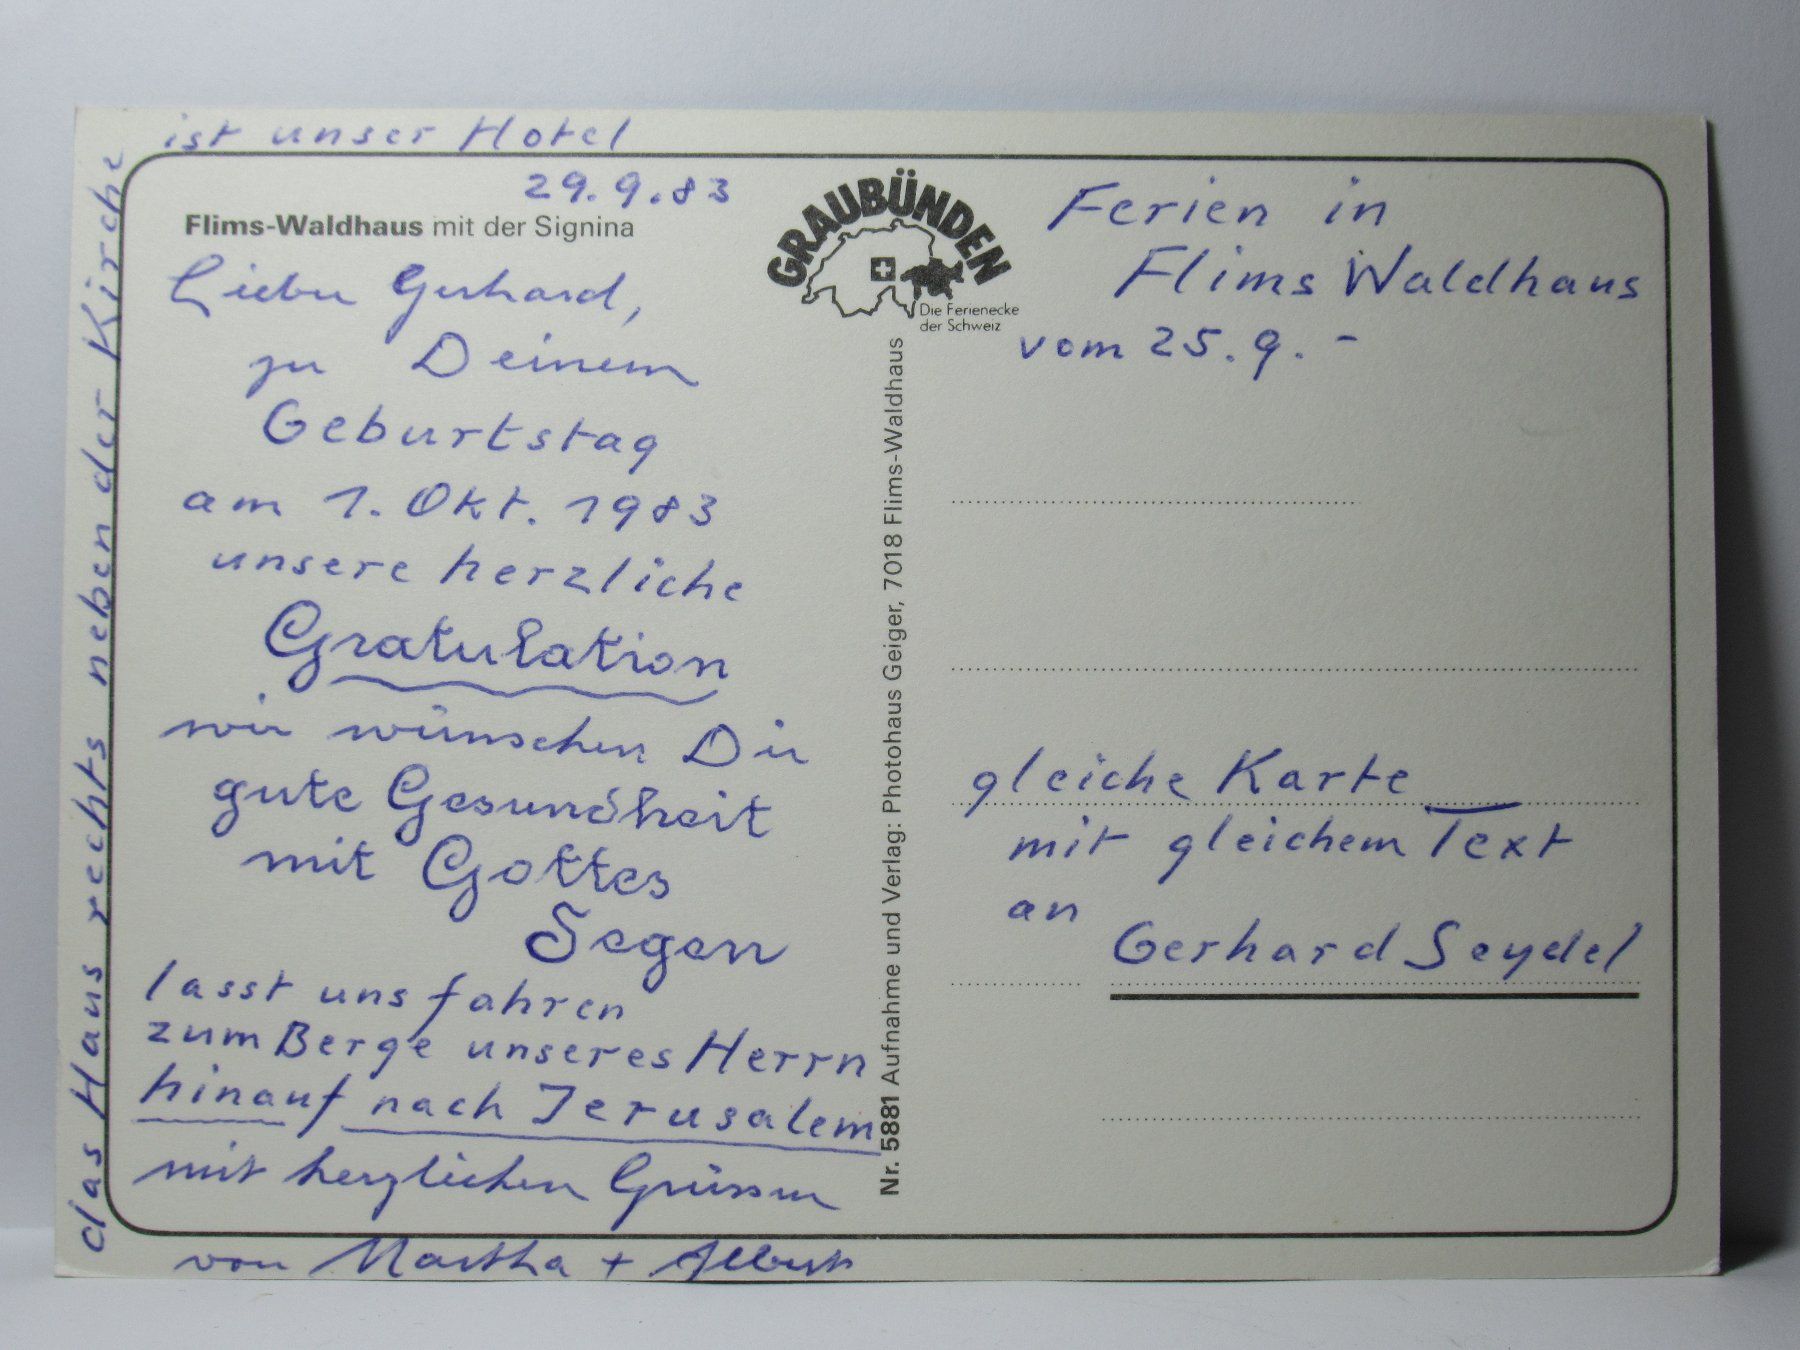 das Haus rechts neben der Kirche
ist unser Hotel
29.9.83
Flims-Waldhaus mit der Signina
Lieber Gerhard,
zu Deinem
Geburtstag
am 1. Okt. 1983
unsere herzliche
Gratulation
wir wünschen Dir
gute Gesundheit
mit Gottes
Segen
lasst uns fahren
zum Berge unseres Herrn
hinauf nach Jerusalem
mit herzlichen Grüssen
von Martha + Albert
GRAUBÜNDEN
Die Ferienecke
der Schweiz
Nr. 5881 Aufnahme und Verlag: Photohaus Geiger, 7018 Flims-Waldhaus
Ferien in
Flims Waldhaus
vom 25.9. -
gleiche Karte
mit gleichem Text
an
Gerhard Seydel